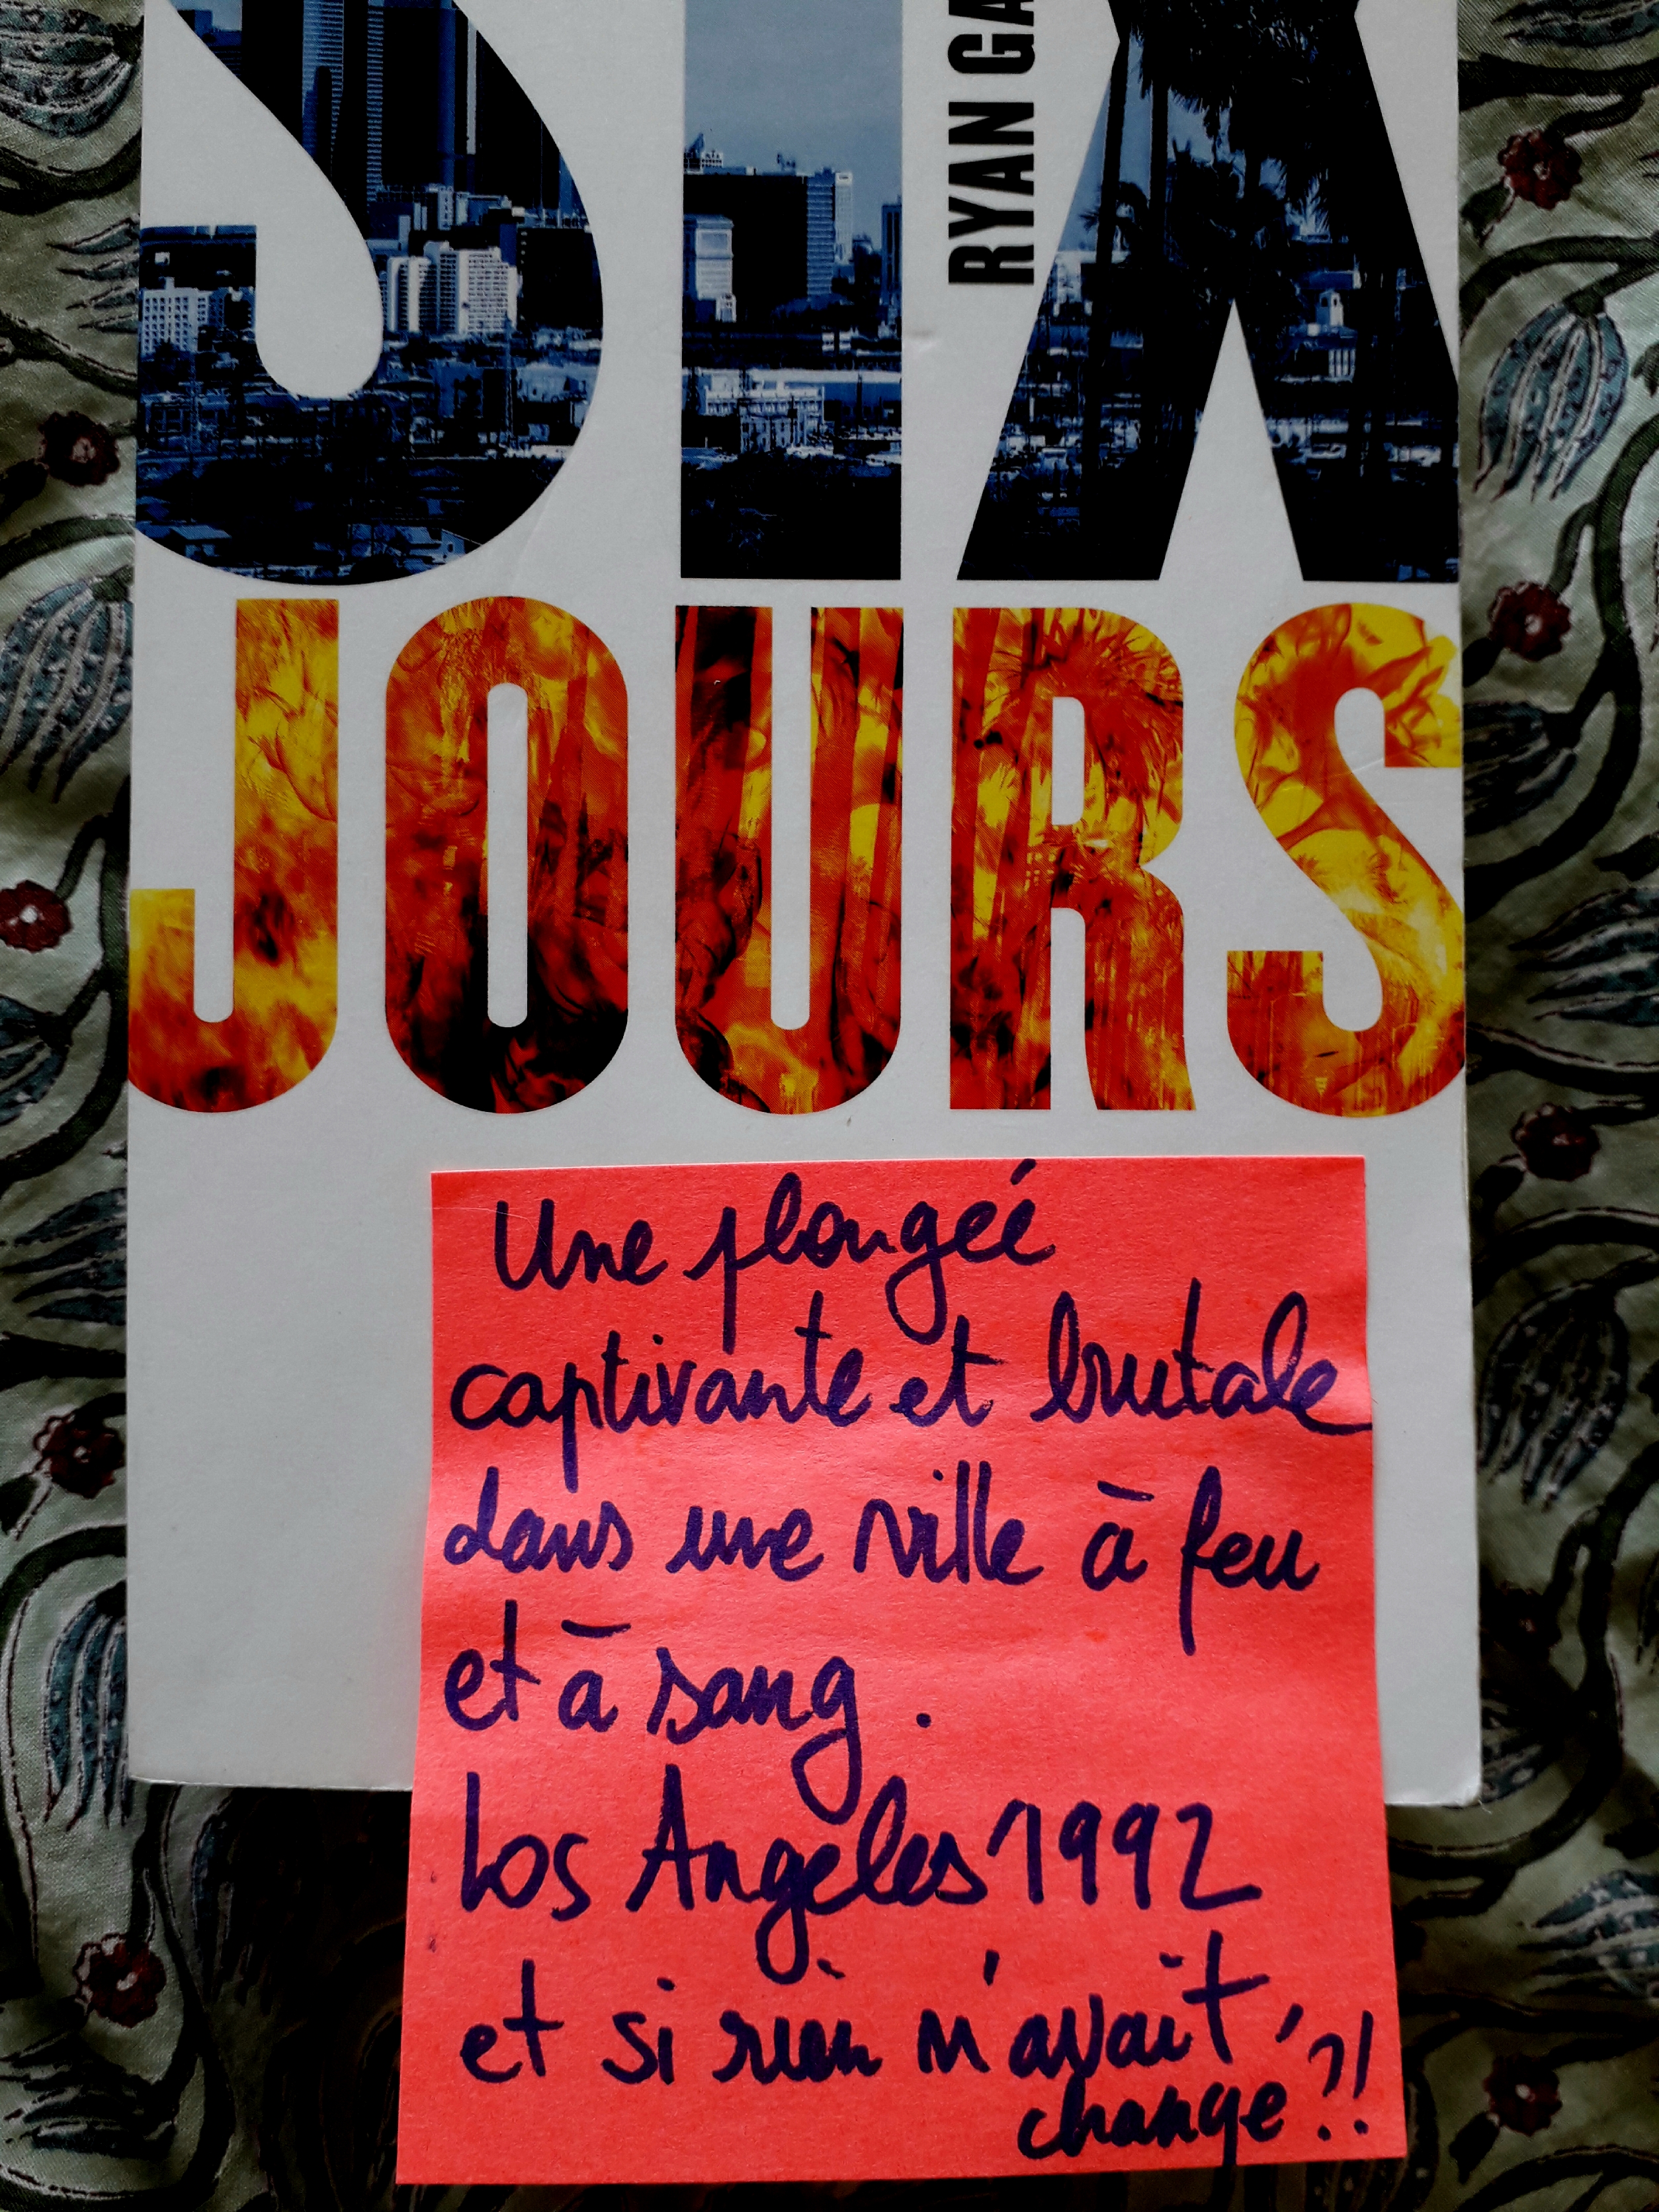 SIX
RYAN GA
JOURS
Une plongée
captivante et brutale
dans une ville à feu
et à sang.
Los Angeles 1992
et si rien n'avait
changé ?!